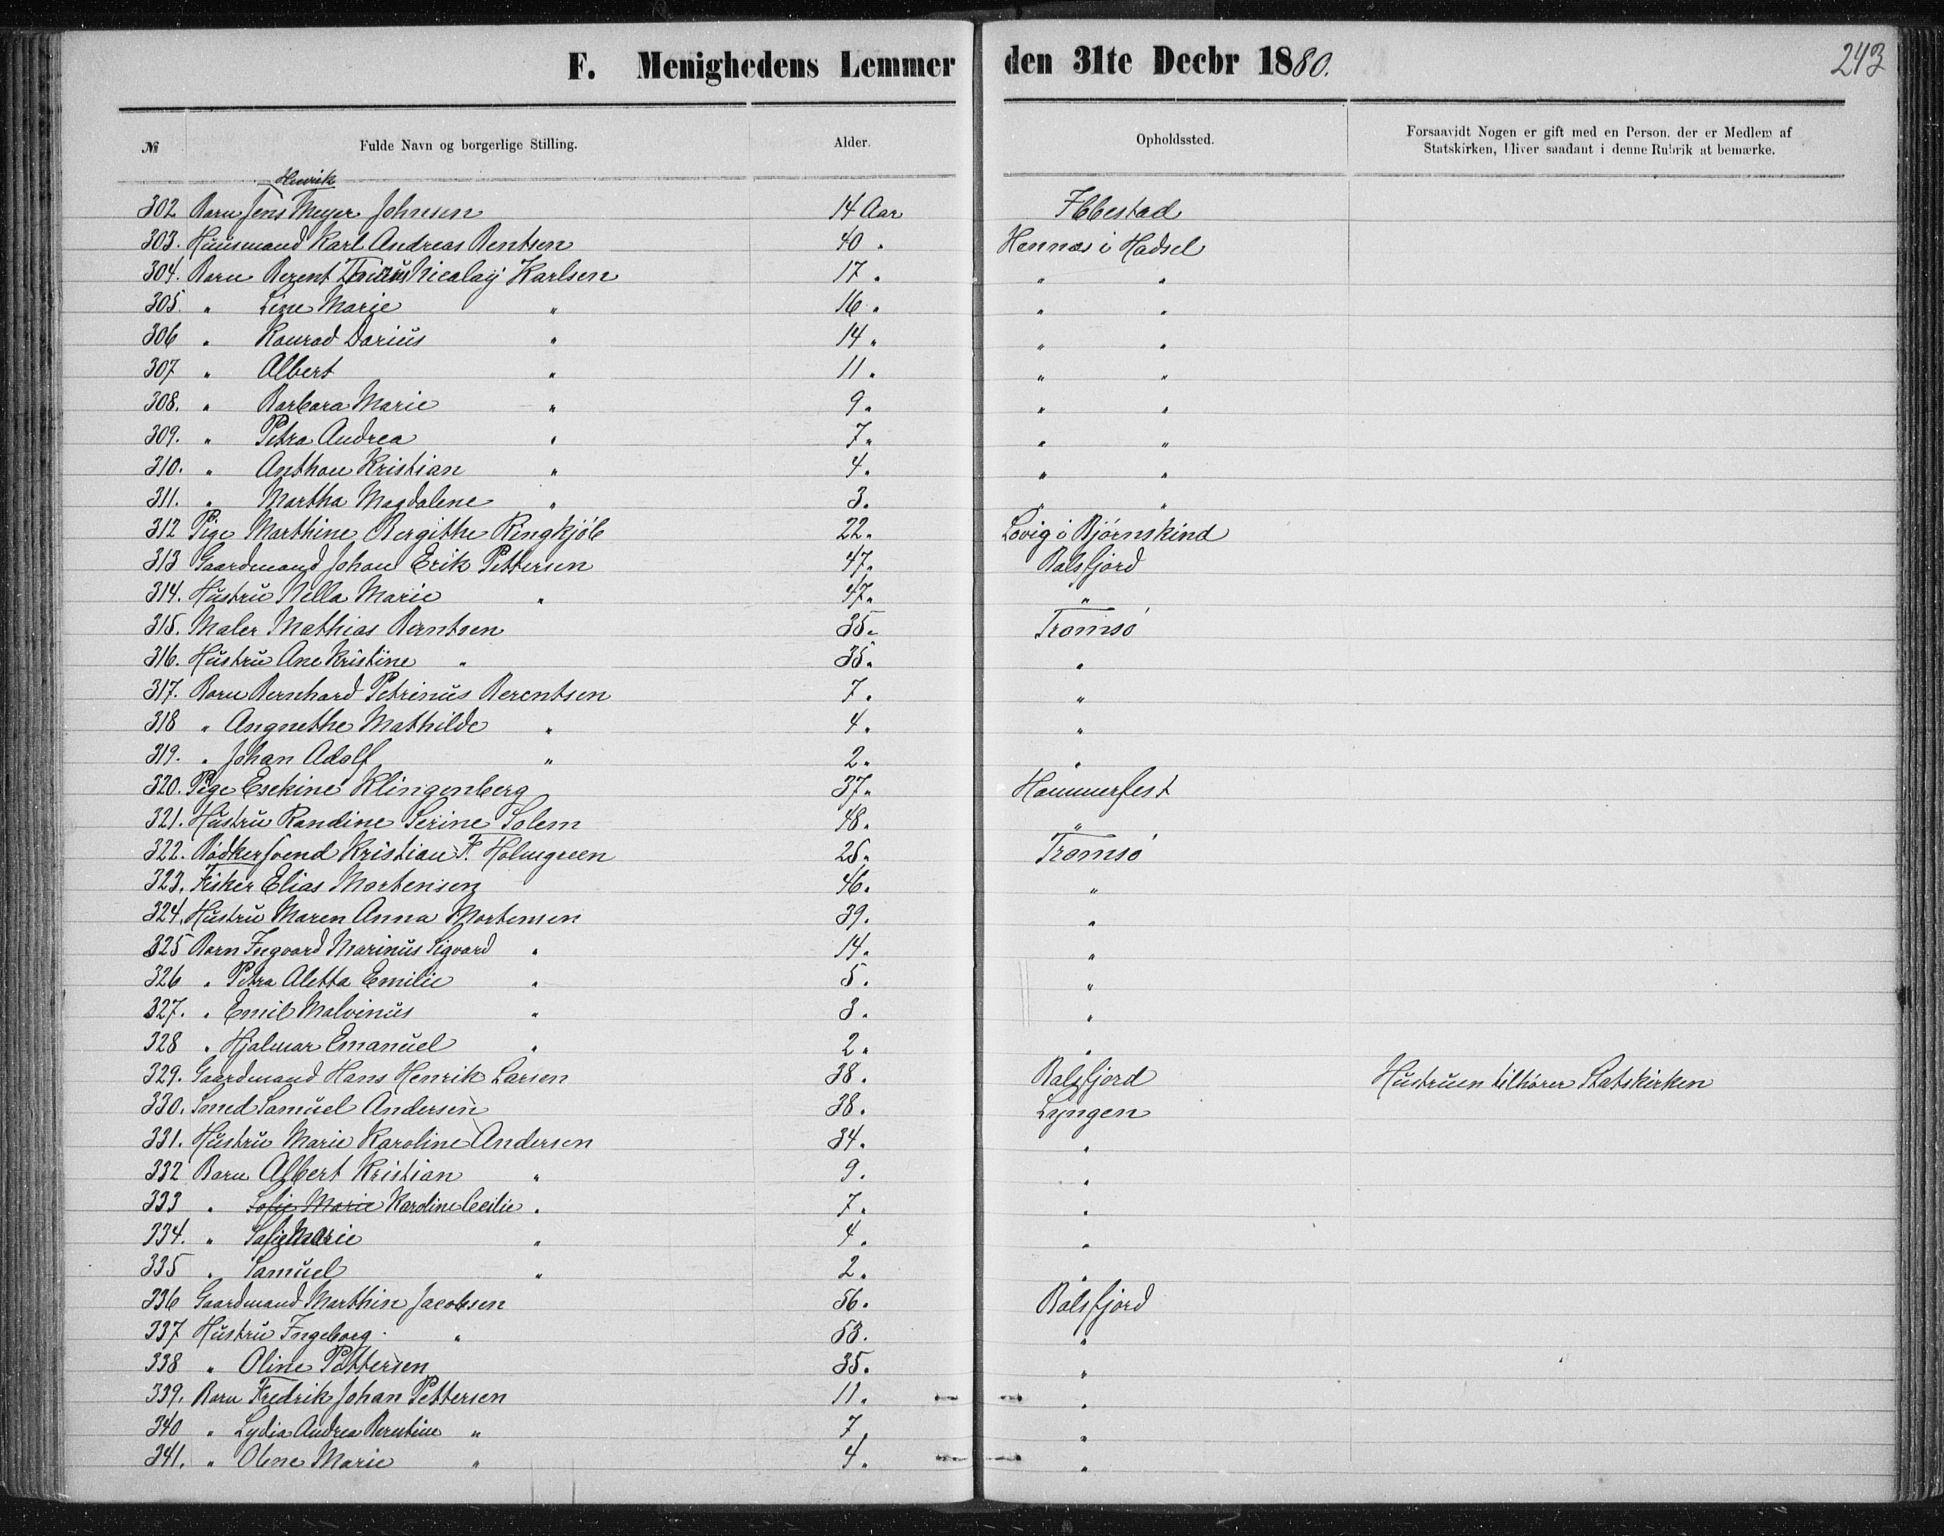 F. Menighedens Lemmer den 31te Decbr 1880.
243
№ Fulde Navn og borgerlige Stilling. Alder. Opholdssted. Forsaavidt Nogen er gift med en Person, der er Medlem af Statskirken, bliver saadant i denne Rubrik at bemærke.
Henrik
302 Barn Jens Meyer Johnsen 14 Aar Ibbestad
303. Huusmand Karl Andreas Bentsen 40 " Hennes i Hadsel
304. Barn Berent Nicolay Karlsen 17 " " "
305. " Line Marie " 16 " " "
306 " Konrad Darius " 14 " " "
307 " Albert " 11 " " "
308. " Barbara Marie " 9 " " "
309. " Petra Andrea " 7 " " "
310. " Anthon Kristian " 4 " " "
311. " Martha Magdalene " 3 " " "
312 Pige Marthine Bergithe Ringkjöb 22 " Lovig i Bjørnskind
313 Gaardmand Johan Erik Pettersen 47 " Balsfjord
314. Hustru Nella Marie " 47 " "
315. Maler Mathias Berntsen 35 " Tromsö
316. Hustru Ane Kristine " 35 " "
317. Barn Bernhard Petrinus Berentsen 7 " "
318 " Angnethe Mathilde " 4 " "
319. " Johan Adolf " 2 " "
320. Pige Esekine Klingenberg 37 " Hammerfest
321. Hustru Randine Serine Solem 48 " "
322. Bödkersvend Kristian F. Holmgreen 25 " Tromsö
323. Fisker Elias Mortensen 46 " "
324. Hustru Maren Anna Mortensen 39 " "
325 Barn Ingvard Marinus Sigvard " 14 " "
326 " Petra Aletta Emilie " 5 " "
327. " Emil Malvinus " 3 " "
328 " Hjalmar Emanuel " 2 " "
329. Gaardmand Hans Henrik Larsen 38 " Balsfjord Hustruen tilhører Statskirken
330. Smed Samuel Andersen 38 " Lyngen
331. Hustru Marie Karoline Andersen 34 " "
332 Barn Albert Kristian " 9 " "
333 " Sofie Marie Karoline Cecilie " 7 " "
334. " Sofie Marie " 4 " "
335 " Samuel " 2 " "
336 Gaardmand Marthin Jacobsen 56 " Balsfjord
337 Hustru Ingeborg " 53 " "
338 " Oline Pettersen 35 " "
339. Barn Fredrik Johan Pettersen 11 " "
340 " Lydia Andrea Berntine " 7 " "
341. " Olene Marie " 4 " "